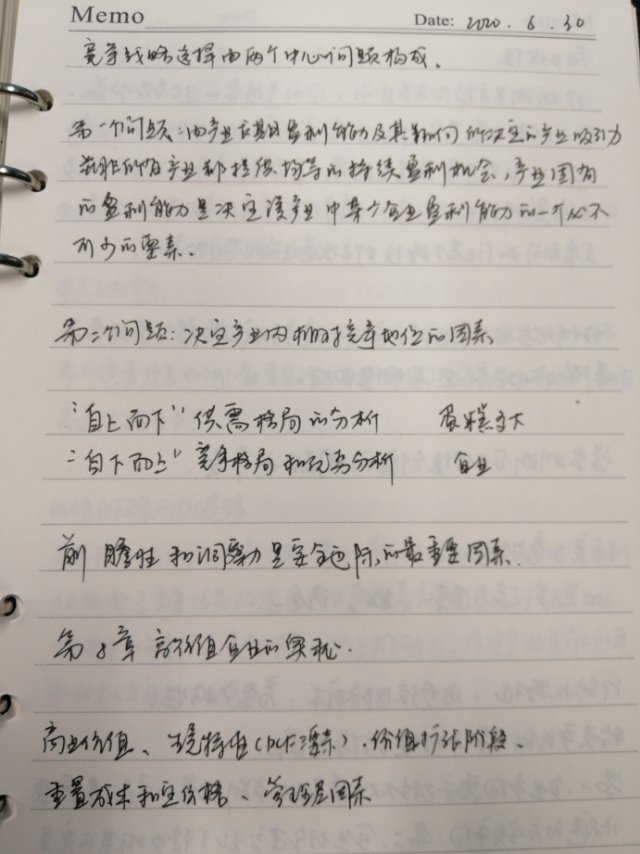 Memo Date: 2020.6.30
竞争战略选择由两个中心问题构成。
第一个问题:由产业长期盈利能力及其影响因素所决定的产业吸引力
并非所有产业都提供均等的持续盈利机会,产业固有
的盈利能力是决定该产业中某个企业盈利能力的一个必不
可少的要素。
第二个问题:决定产业内相对竞争地位的因素
“自上而下” 供需格局的分析 蛋糕多大
“自下而上” 竞争格局和优势分析 企业
前瞻性和洞察力是安全边际的最重要因素.
第8章 高价值企业的奥秘.
商业价值、特性(DCF三要素)、价值扩张阶段、
重置成本和定价格、管理层因素